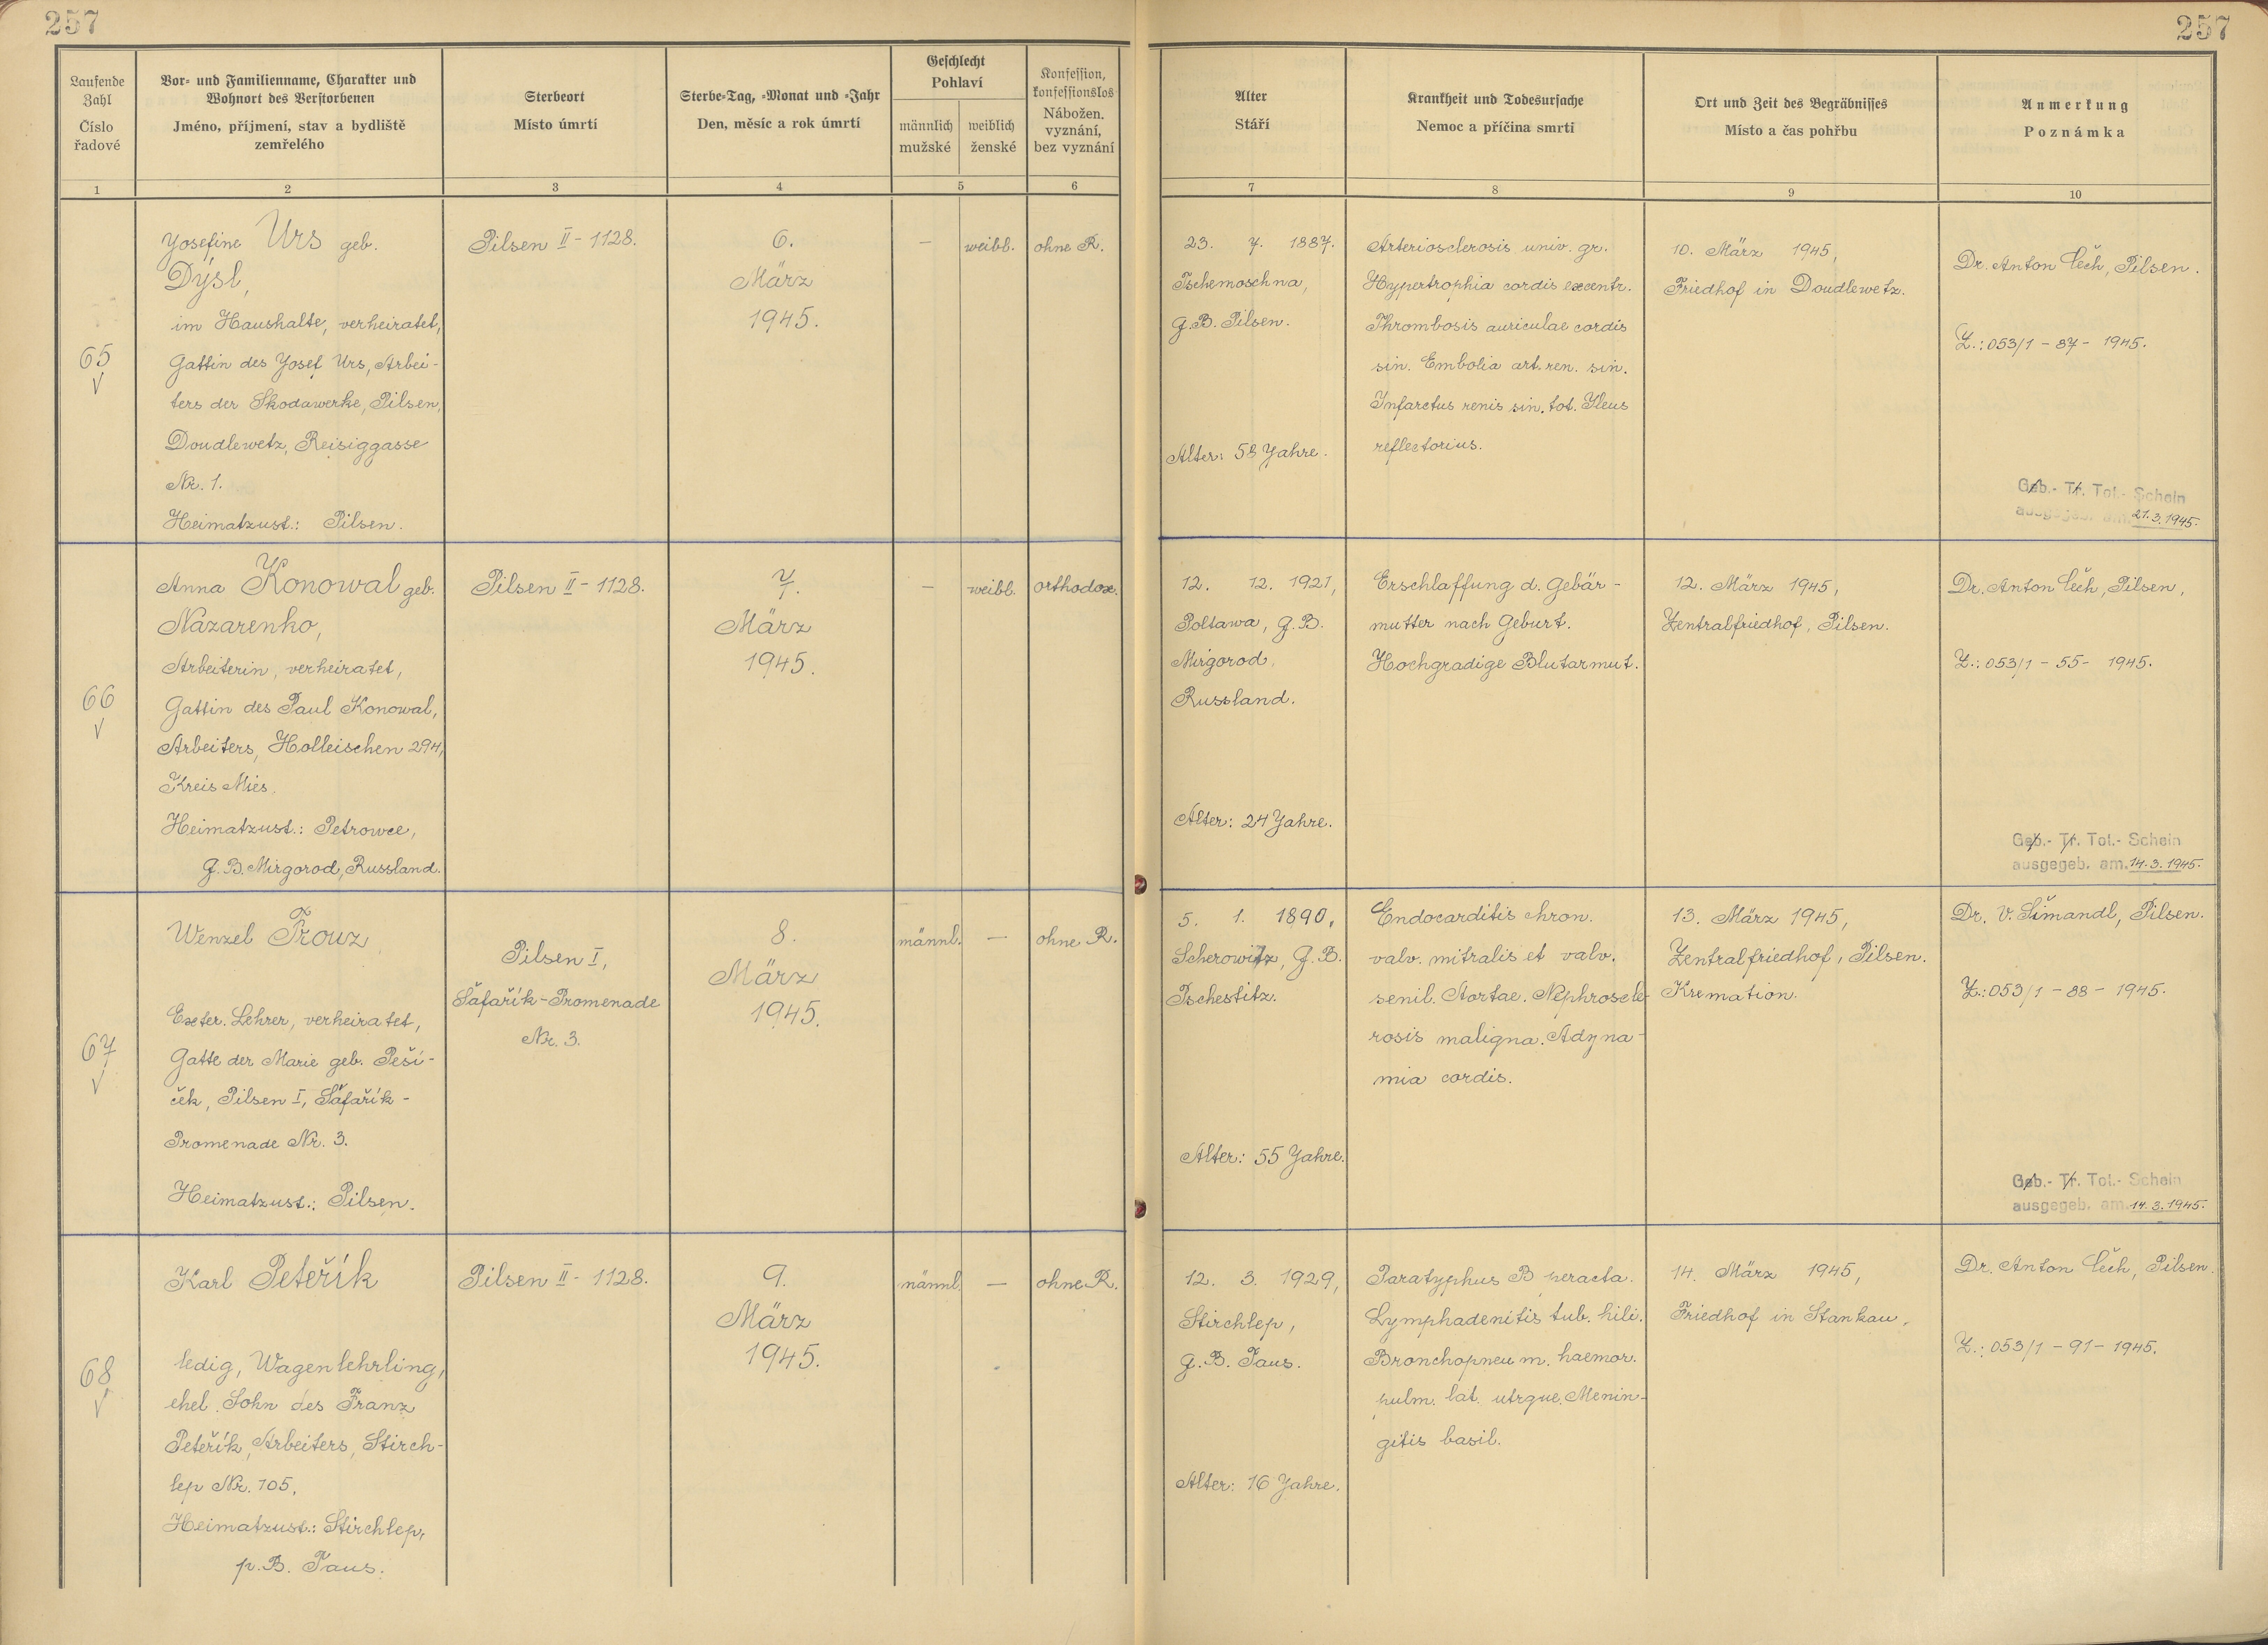 257
257
Laufende Zahl
Číslo řadové
Vor- und Familienname, Charakter und Wohnort des Verstorbenen
Jméno, příjmení, stav a bydliště zemřelého
Sterbeort
Místo úmrtí
Sterbe-Tag, -Monat und -Jahr
Den, měsíc a rok úmrtí
Geschlecht
Pohlaví
männlich
mužské
weiblich
ženské
Konfession, konfessionslos
Nábožen. vyznání, bez vyznání
Alter
Stáří
Krankheit und Todesursache
Nemoc a příčina smrti
Ort und Zeit des Begräbnisses
Místo a čas pohřbu
Anmerkung
Poznámka
1
2
3
4
5
6
7
8
9
10
65
Josefine Urs geb.
Dýsl,
im Haushalte, verheiratet,
Gattin des Josef Urs, Arbei-
ters der Skodawerke, Pilsen,
Doudlewetz, Reisiggasse
Nr. 1.
Heimatzust.: Pilsen.
Pilsen II - 1128.
6.
März
1945.
—
weibl.
ohne R.
23. 7. 1887.
Tschemoschna,
G.B. Pilsen.
Alter: 58 Jahre.
Arteriosclerosis univ. gr.
Hypertrophia cordis excentr.
Thrombosis auriculae cordis
sin. Embolia art. ren. sin.
Infarctus renis sin. tot. Ileus
reflectorius.
10. März 1945,
Friedhof in Doudlewetz.
Dr. Anton Čech, Pilsen.
Z.: 053/1 - 87 - 1945.
Geb.- Tr. Tot.- Schein
ausgegeb. am 21.3.1945.
66
Anna Konowal geb.
Nazarenko,
Arbeiterin, verheiratet,
Gattin des Paul Konowal,
Arbeiters, Holleischen 294,
Kreis Mies.
Heimatzust.: Petrowce,
G.B. Mirgorod, Russland.
Pilsen II - 1128.
7.
März
1945.
—
weibl.
orthodox.
12. 12. 1921,
Poltawa, G.B.
Mirgorod,
Russland.
Alter: 24 Jahre.
Erschlaffung d. Gebär-
mutter nach Geburt.
Hochgradige Blutarmut.
12. März 1945,
Zentralfriedhof, Pilsen.
Dr. Anton Čech, Pilsen,
Z.: 053/1 - 55 - 1945.
Geb.- Tr. Tot.- Schein
ausgegeb. am 14.3.1945.
67
Wenzel Trouz
Exter. Lehrer, verheiratet,
Gatte der Marie geb. Peší-
ček, Pilsen I, Šafařík-
Promenade Nr. 3.
Heimatzust.: Pilsen.
Pilsen I,
Šafařík-Promenade
Nr. 3.
8.
März
1945.
männl.
—
ohne R.
5. 1. 1890,
Scherowitz, G.B.
Pschestitz.
Alter: 55 Jahre.
Endocarditis chron.
valv. mitralis et valv.
senil. Aortae. Nephroscle-
rosis maligna. Adyna-
mia cordis.
13. März 1945,
Zentralfriedhof, Pilsen.
Kremation.
Dr. V. Šimandl, Pilsen.
Z.: 053/1 - 88 - 1945.
Geb.- Tr. Tot.- Schein
ausgegeb. am 14.3.1945.
68
Karl Peteřík
ledig, Wagenlehrling,
ehel. Sohn des Franz
Peteřík, Arbeiters, Stirch-
lep Nr. 105,
Heimatzust.: Stirchlep,
p.B. Taus.
Pilsen II - 1128.
9.
März
1945.
männl.
—
ohne R.
12. 3. 1929,
Stirchlep,
G.B. Taus.
Alter: 16 Jahre.
Paratyphus B peracta.
Lymphadenitis tub. hili.
Bronchopneum. haemor.
pulm. lat. utrque. Menin-
gitis basil.
14. März 1945,
Friedhof in Stankau,
Dr. Anton Čech, Pilsen.
Z.: 053/1 - 91 - 1945.